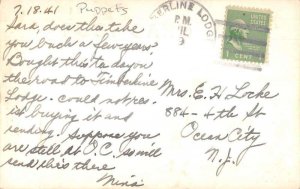 7.18.41 Puppets
Sara, does this take
you back a few years
Bought this today on
the road to Timberline
Lodge. could not res-
ist buying it and
sending. Suppose you
are still at O.C. so will
send this there
Nina
BERLINE LODG
P.M.
UNITED STATES
1 CENT
Mrs. E. H. Locke
884-4th St
Ocean City
N.J.